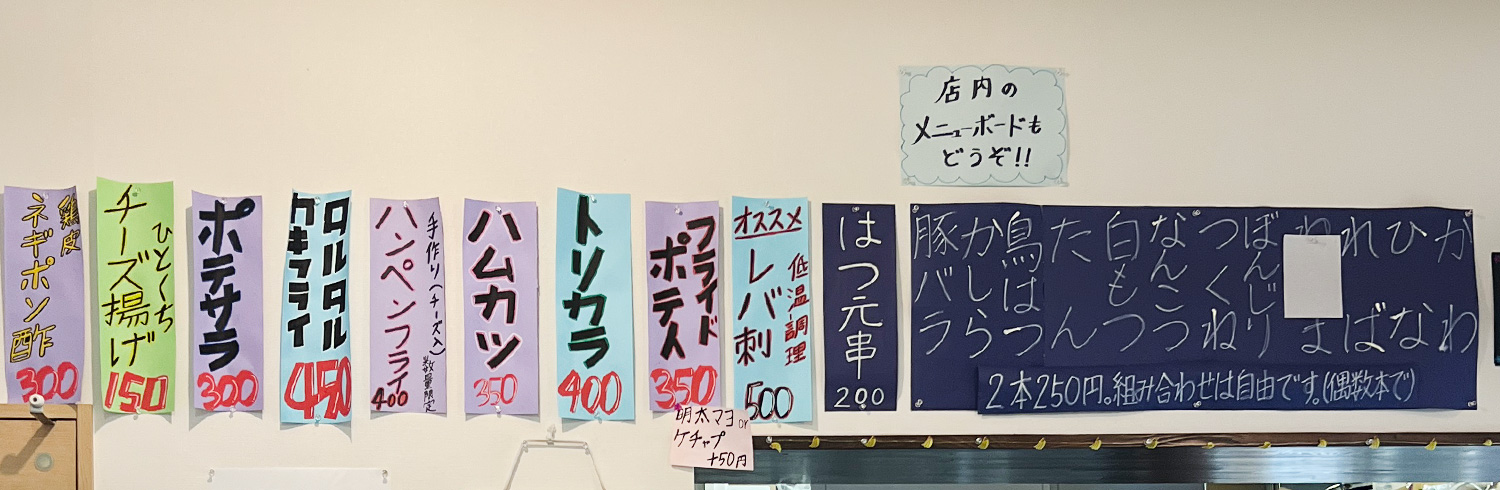 店内の
メニューボードも
どうぞ!!
かわ
ひな
れば
ぼんじり
つくね
なんこつ
白もつ
たん
鳥はつ
かしら
豚バラ
2本250円。組み合わせは自由です。(偶数本で)
はつ元串
200
オススメ
低温調理
レバ刺
500
フライド
ポテト
350
明太マヨor
ケチャプ
+50円
トリカラ
400
ハムカツ
350
手作り(チーズ入)
数量限定
ハンペンフライ
400
タルタル
カキフライ
450
ポテサラ
300
ひとくち
チーズ揚げ
150
鶏皮
ネギポン酢
300